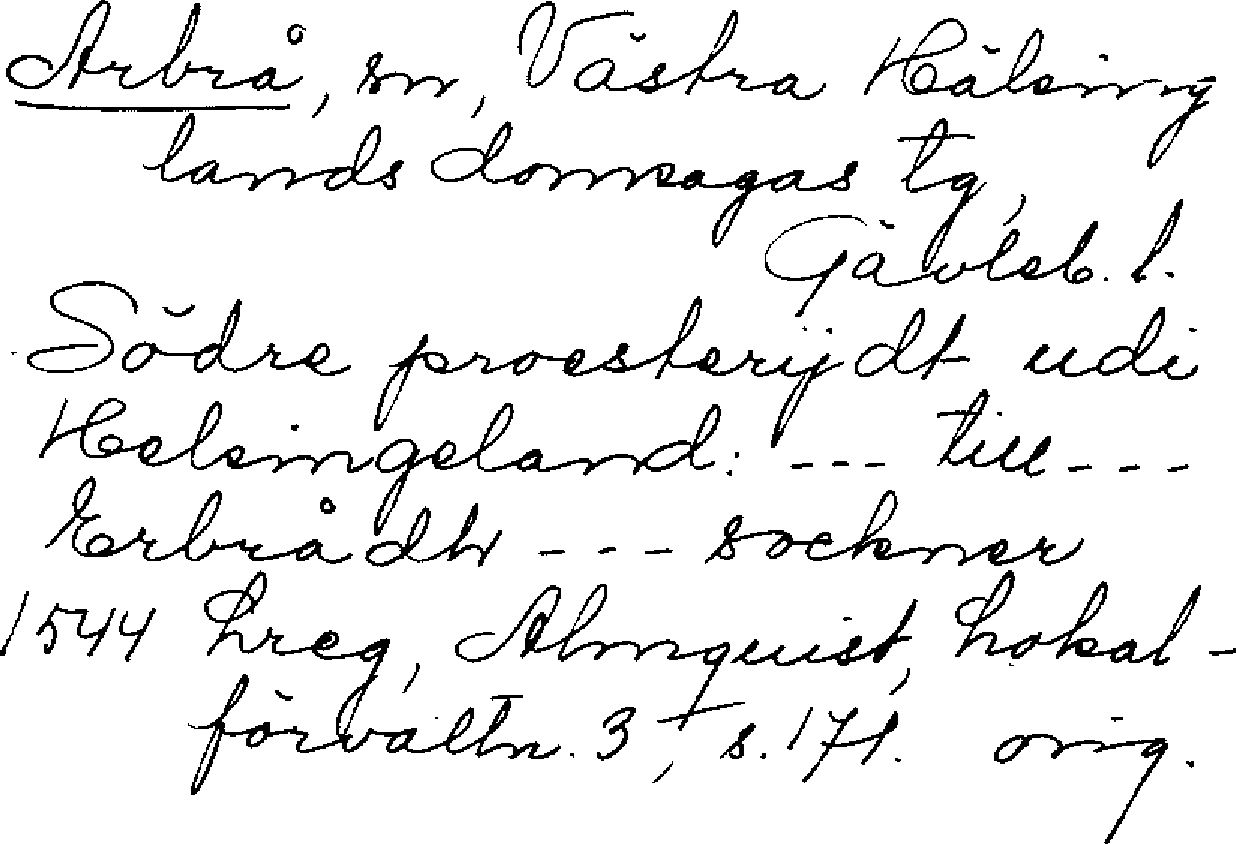 Arbrå, sn, Västra Hälsing
lands domsagas tg,
Gävleb. l.
Södre proesterijdt udi
Helsingeland: --- till ---
Erbrådh --- sockner
1544 Lreg, Almquist, Lokal-
förvaltn. 3, s. 171. orig.